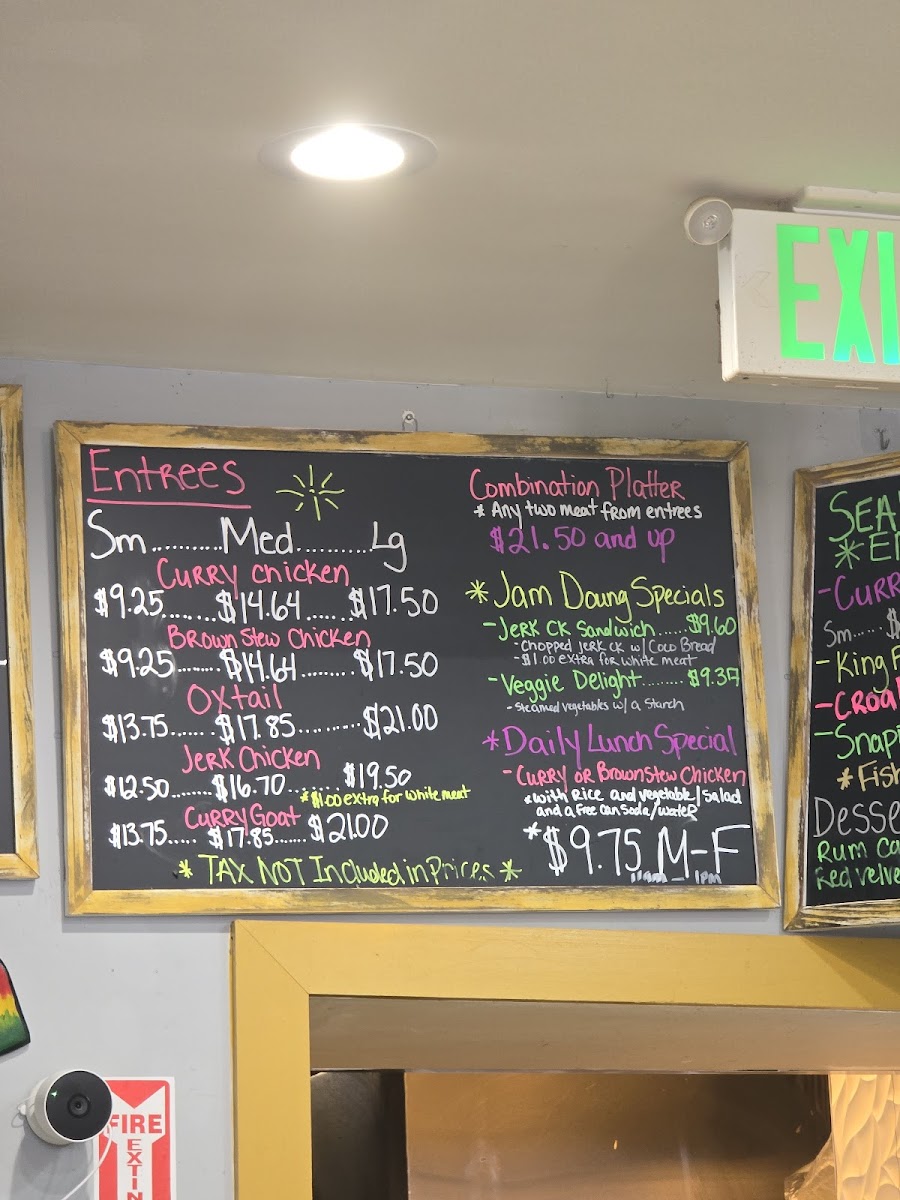 Entrees
Sm..........Med..........Lg
Curry chicken
$9.25......$14.64......$17.50
Brown Stew Chicken
$9.25........$14.64........$17.50
Oxtail
$13.75......$17.85..........$21.00
Jerk Chicken
$12.50.......$16.70.......$19.50
*$1.00 extra for white meat
Curry Goat
$13.75..... $17.85...... $21.00
* TAX NOT Included in Prices *
Combination Platter
* Any two meat from entrees
$21.50 and up
* Jam Doung Specials
-Jerk CK Sandwich.....$9.60
-Chopped Jerk CK w/ Coco Bread
-$1.00 extra for white meat
-Veggie Delight........$9.35
-Steamed vegetables w/ a Starch
*Daily Lunch Special
-Curry or Brown Stew Chicken
*with Rice and vegetable/Salad
and a Free Can Soda/water
*$9.75 M-F
11am - 1pm
*
-Curr
Sm.....$
-King F
-Croa
-Snap
*Fish
Desse
Rum Ca
Red velve
EXI
FIRE
EXTIN